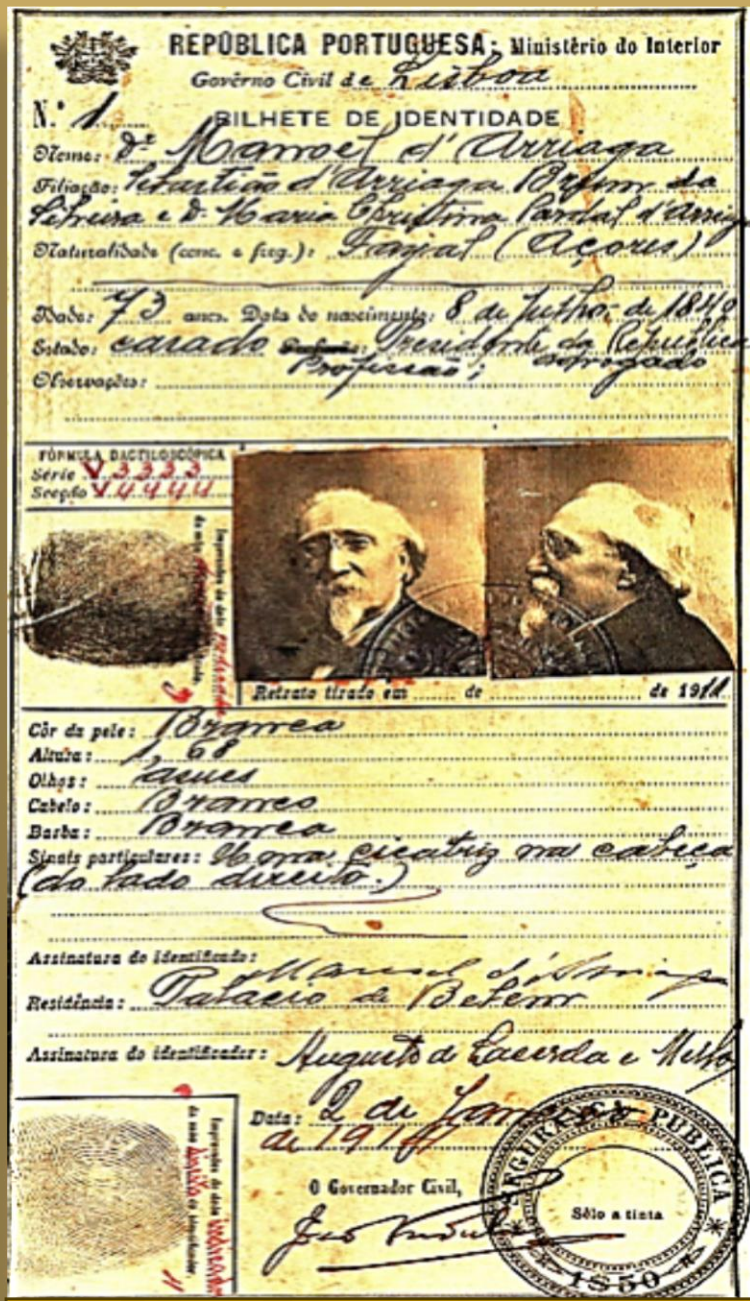 REPÚBLICA PORTUGUESA: Ministério do Interior
Govêrno Civil de Lisboa
N.º 1
BILHETE DE IDENTIDADE
Nome: Dr. Manoel d'Arriaga
Filiação: Sebastião d'Arriaga Brum da
Silveira e D. Maria Christina Pardal d'Arriaga
Naturalidade (conc. e freg.): Fayal (Açores)
Idade: 73 anos. Data do nascimento: 8 de Julho de 1840
Estado: casado Presidente da Republica
Profissão; advogado
Observações:
FÓRMULA DACTILOSCÓPICA
Série V 3333
Secção V 4444
Impressão do dedo indicador
da mão
Retrato tirado em ...... de ...... de 1911
Côr da pele: Branca
Altura: 1,68
Olhos: asues
Cabelo: Branco
Barba: Branca
Sinais particulares: Uma cicatriz na cabeça
(do lado direito.)
Assinatura do identificado:
Manuel d'Arriaga
Residência: Palacio de Belem
Assinatura do identificador: Augusto de Lacerda e Mello
Impressão do dedo indicador
da mão direita do identificado,
Data: 2 de Janeiro
de 1914
O Governador Civil,
SEGURANÇA PUBLICA
Sêlo a tinta
1$50